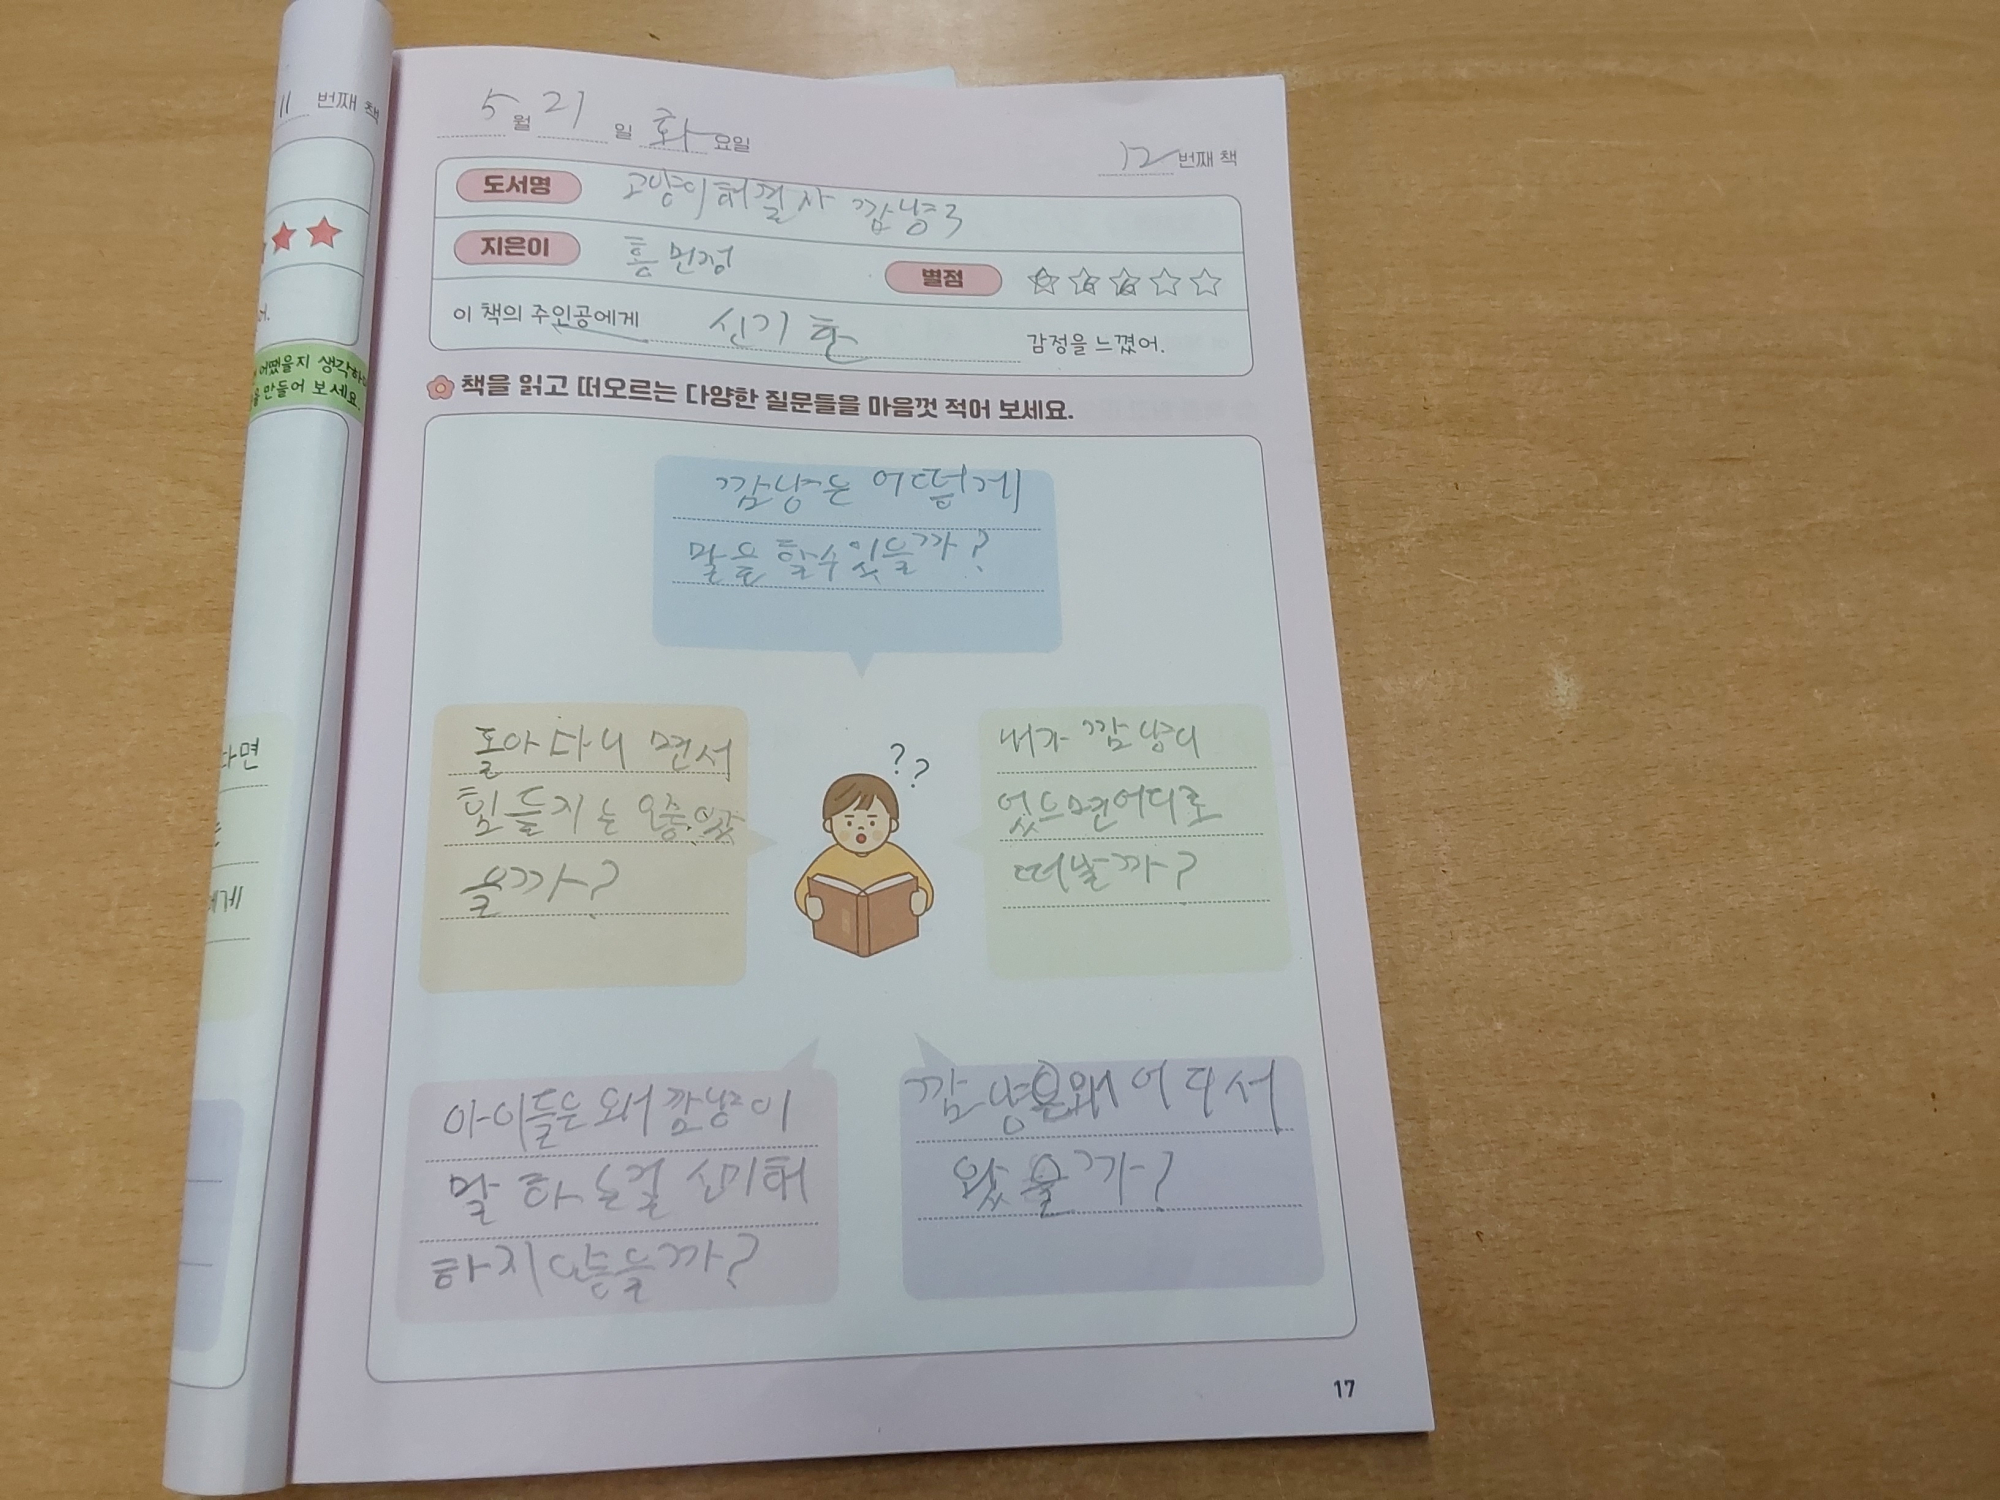 11 번째 책
어땠을지 생각하
만들어 보세요.
다면
에게
5월 21일 화요일
12 번째 책
도서명 고양이해결사 깜냥3
지은이 홍민정
별점
이 책의 주인공에게 신기한 감정을 느꼈어.
책을 읽고 떠오르는 다양한 질문들을 마음껏 적어 보세요.
깜냥은 어떻게
말을 할수있을까?
돌아다니면서
힘들지는
을까?
내가 깜냥이
었으면어디로
떠날까?
??
아이들은 왜 깜냥이
말 하는걸 신기해
하지않을까?
깜냥은왜 어디서
왔을까?
17